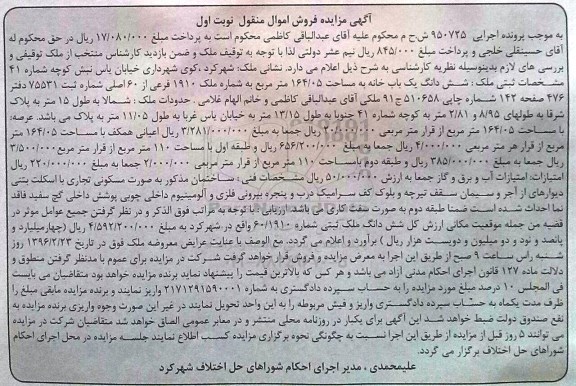 آگهی مزایده فروش اموال منقول نوبت اول
به موجب پرونده اجرایی ۹۵۰۷۲۵ ش.ح م محکوم علیه آقای عبدالباقی کاظمی محکوم است به پرداخت مبلغ ۱۷/۰۸۰/۰۰۰ ریال در حق محکوم له
آقای حسینقلی خلجی و پرداخت مبلغ ۸۴۵/۰۰۰ ریال نیم عشر دولتی لذا با توجه به توقیف ملک و ضمن بازدید کارشناس منتخب از ملک توقیفی و
بررسی های لازم بدینوسیله نظریه کارشناسی به شرح ذیل اعلام می دارد. نشانی ملک: شهرکرد ،کوی شهرداری خیابان یاس نبش کوچه شماره ۴۱
مشخصات ثبتی ملک: شش دانگ یک باب خانه به مساحت ۱۶۴/۰۵ متر مربع به شماره ملک ۱۹۱۰ فرعی از ۶۰ اصلی شماره ثبت ۷۵۵۳۱ دفتر
۴۷۶ صفحه ۱۴۲ شماره چاپی ۵۱۰۶۵۸ ج ۹۱ ملکی آقای عبدالباقی کاظمی و خانم الهام غلامی . حدودات ملک: شمالا به طول ۱۵ متر به پلاک
شرقا به طولهای ۸/۹۵ و ۲/۸۱ متر به کوچه شماره ۴۱ جنوبا به طول ۱۳/۱۵ متر به خیابان یاس غربا به طول ۱۱/۰۵ متر به پلاک می باشد. عرصه:
با مساحت ۱۶۴/۰۵ متر مربع از قرار متر مربعی ریال جمعا به مبلغ ۳/۲۸۱/۰۰۰/۰۰۰ ریال اعیانی همکف با مساحت ۱۶۴/۰۵ متر
مربع از قرار هر متر مربعی ۴/۰۰۰/۰۰۰ ریال جمعا به مبلغ ۶۵۶/۲۰۰/۰۰۰ ریال و طبقه اول با مساحت ۱۱۰ متر مربع از قرار متر مربعی ۳/۵۰۰/۰۰۰
ریال جمعا به مبلغ ۳۸۵/۰۰۰/۰۰۰ ریال و طبقه دوم بامساحت ۱۱۰ متر مربع از قرار متر مربعی ۲/۰۰۰/۰۰۰ ریال جمعا به مبلغ ۲۲۰/۰۰۰/۰۰۰ ریال
امتیازات: امتیازات آب و برق و گاز جمعا به ارزش ۵۰/۰۰۰/۰۰۰ ریال مشخصات فنی : ساختمان مذکور به صورت مسکونی تجاری با اسکلت بتنی
دیوارهای از آجر و سیمان سقف تیرچه و بلوک کف سرامیک درب و پنجره بیرونی فلزی و آلومینیوم داخلی چوبی پوشش داخلی گچ سفید فاقد
نما احداث شده است ضمنا طبقه دوم به صورت سفت کاری می باشد ارزیابی: با توجه به مراتب فوق الذکر و در نظر گرفتن جمیع عوامل موثر در
قضیه من جمله موقعیت مکانی ارزش کل شش دانگ ملک ثبتی شماره ۶۰/۱۹۱۰ واقع در شهرکرد به مبلغ ۴/۵۹۲/۲۰۰/۰۰۰ ریال (چهارمیلیارد و
پانصد و نود و دو میلیون و دویست هزار ریال ) برآورد و اعلام می گردد. مع الوصف با عنایت عرایض معروضه ملک فوق در تاریخ ۱۳۹۶/۲/۲۳ روز
شنبه راس ساعت ۹ صبح از طریق این اجرا به معرض مزایده و فروش قرار خواهد گرفت شرکت در مزایده برای عموم با مدنظر گرفتن منطوق و
دلالت ماده ۱۲۷ قانون اجرای احکام مدنی آزاد می باشد و هر کس که بالاترین قیمت را پیشنهاد نماید برنده مزایده خواهد بود متقاضیان می بایست
فی المجلس ۱۰ درصد مبلغ مورد مزایده را به حساب سپرده دادگستری به شماره ۲۱۷۱۲۹۱۵۹۰۰۰۱ واریز نمایند و برنده مزایده مابقی مبلغ را
ظرف مدت یکماه به حساب سپرده دادگستری واریز و فیش مربوطه را به این واحد تحویل نمایند در غیر این صورت وجوه واریزی برنده مزایده به
نفع صندوق دولت ضبط خواهد شد این آگهی برای یکبار در روزنامه محلی منتشر و در معابر عمومی الصاق خواهد شد متقاضیان شرکت در مزایده
می توانند ۵ روز قبل از مزایده از طریق این اجرا نسبت به چگونگی نحوه برگزاری مزایده کسب اطلاع نمایند جلسه مزایده در محل اجرای احکام
شوراهای حل اختلاف برگزار می گردد.
علیمحمدی ، مدیر اجرای احکام شوراهای حل اختلاف شهرکرد